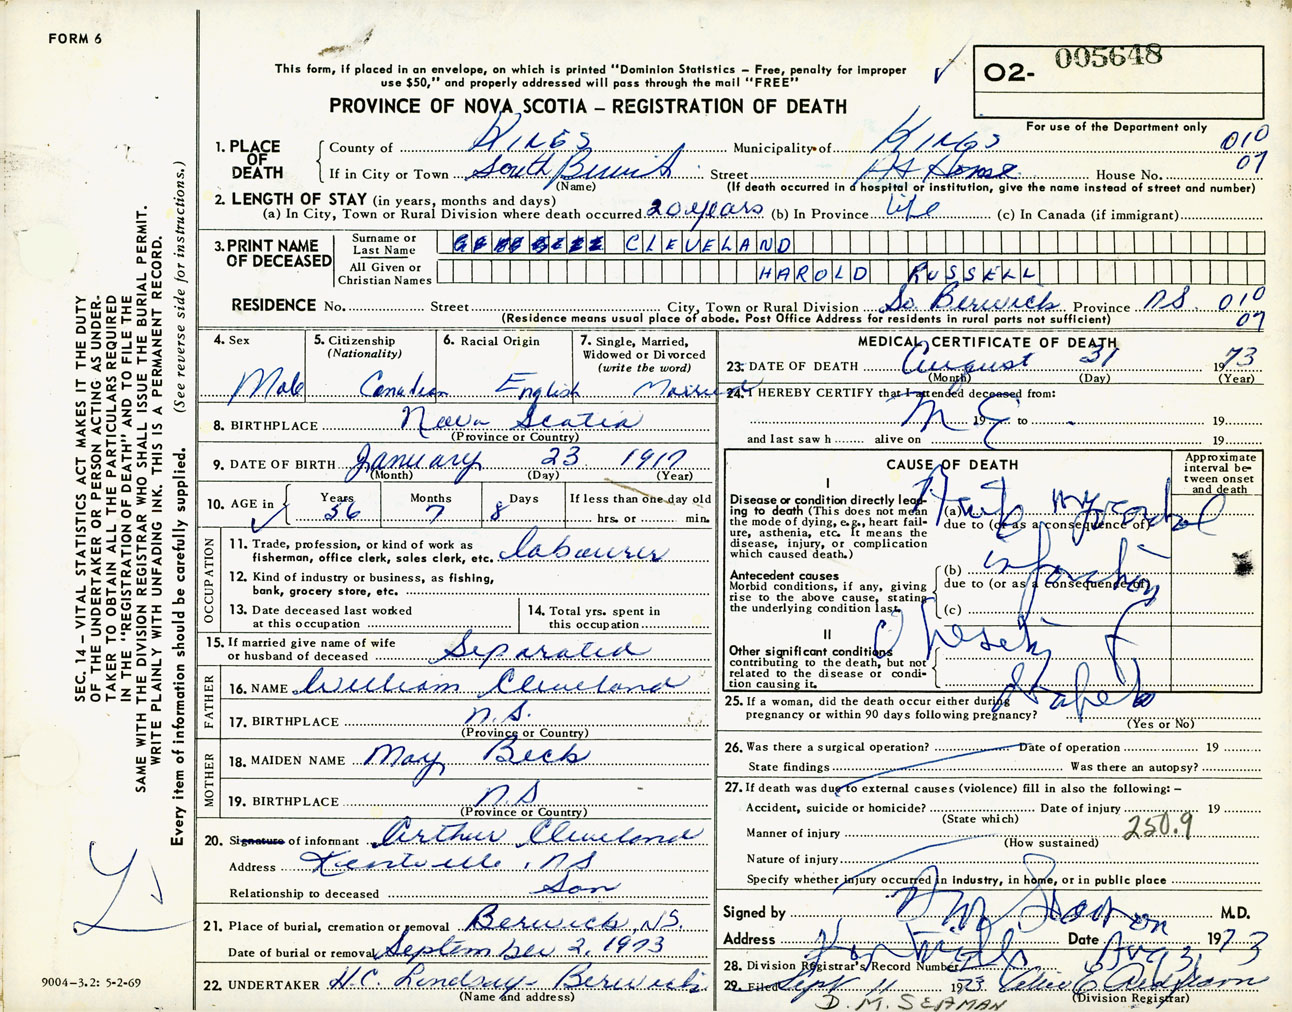 FORM 6
This form, if placed in an envelope, on which is printed "Dominion Statistics – Free, penalty for improper
use $50," and properly addressed will pass through the mail "FREE"
PROVINCE OF NOVA SCOTIA – REGISTRATION OF DEATH
O2- 005648
For use of the Department only
1. PLACE OF DEATH
County of Kings Municipality of Kings 010
If in City or Town South Berwick Street At Home House No. 07
(Name) (If death occurred in a hospital or institution, give the name instead of street and number)
2. LENGTH OF STAY (in years, months and days)
(a) In City, Town or Rural Division where death occurred 20 years (b) In Province Life (c) In Canada (if immigrant)
3. PRINT NAME OF DECEASED
Surname or Last Name CLEVELAND
All Given or Christian Names HAROLD RUSSELL
RESIDENCE No. Street City, Town or Rural Division So. Berwick Province NS. 010
(Residence means usual place of abode. Post Office Address for residents in rural parts not sufficient) 07
4. Sex
Male
5. Citizenship
(Nationality)
Canadian
6. Racial Origin
English
7. Single, Married,
Widowed or Divorced
(write the word)
Married
8. BIRTHPLACE Nova Scotia
(Province or Country)
9. DATE OF BIRTH January 23 1917
(Month) (Day) (Year)
10. AGE in Years Months Days If less than one day old
56 7 8 hrs. or min.
OCCUPATION
11. Trade, profession, or kind of work as
fisherman, office clerk, sales clerk, etc. labourer
12. Kind of industry or business, as fishing,
bank, grocery store, etc.
13. Date deceased last worked
at this occupation
14. Total yrs. spent in
this occupation
15. If married give name of wife
or husband of deceased Separated
FATHER
16. NAME William Cleveland
17. BIRTHPLACE N.S.
(Province or Country)
MOTHER
18. MAIDEN NAME Mary Beck
19. BIRTHPLACE N.S
(Province or Country)
20. Signature of informant Arthur Cleveland
Address Kentville, NS
Relationship to deceased Son
21. Place of burial, cremation or removal Berwick, NS.
Date of burial or removal September 2, 1973
22. UNDERTAKER H.C. Lindsay Berwick
(Name and address)
MEDICAL CERTIFICATE OF DEATH
23. DATE OF DEATH August 31 1973
(Month) (Day) (Year)
24. I HEREBY CERTIFY that I attended deceased from:
M E 19 to 19
and last saw h alive on 19
CAUSE OF DEATH
Approximate interval between onset and death
I
Disease or condition directly leading to death (This does not mean the mode of dying, e.g., heart failure, asthenia, etc. It means the disease, injury, or complication which caused death.)
(a) Acute myocardial
due to (or as a consequence of)
Antecedent causes
Morbid conditions, if any, giving rise to the above cause, stating the underlying condition last.
(b) infarction
due to (or as a consequence of)
(c)
II
Other significant conditions
contributing to the death, but not related to the disease or condition causing it.
Obesity
25. If a woman, did the death occur either during
pregnancy or within 90 days following pregnancy?
(Yes or No)
26. Was there a surgical operation? Date of operation 19
State findings Was there an autopsy?
27. If death was due to external causes (violence) fill in also the following: –
Accident, suicide or homicide? Date of injury 19
(State which)
Manner of injury 250.9
(How sustained)
Nature of injury
Specify whether injury occurred in industry, in home, or in public place
Signed by M.D.
Address Date Aug 31 1973
28. Division Registrar's Record Number
29. Filed Sept 11 1973
(Division Registrar)
D. M. SEAMAN
SEC. 14 – VITAL STATISTICS ACT MAKES IT THE DUTY
OF THE UNDERTAKER OR PERSON ACTING AS UNDER-
TAKER TO OBTAIN ALL THE PARTICULARS REQUIRED
IN THE "REGISTRATION OF DEATH" AND TO FILE THE
SAME WITH THE DIVISION REGISTRAR WHO SHALL ISSUE THE BURIAL PERMIT.
WRITE PLAINLY WITH UNFADING INK. THIS IS A PERMANENT RECORD.
Every item of information should be carefully supplied. (See reverse side for instructions.)
9004-3.2: 5-2-69